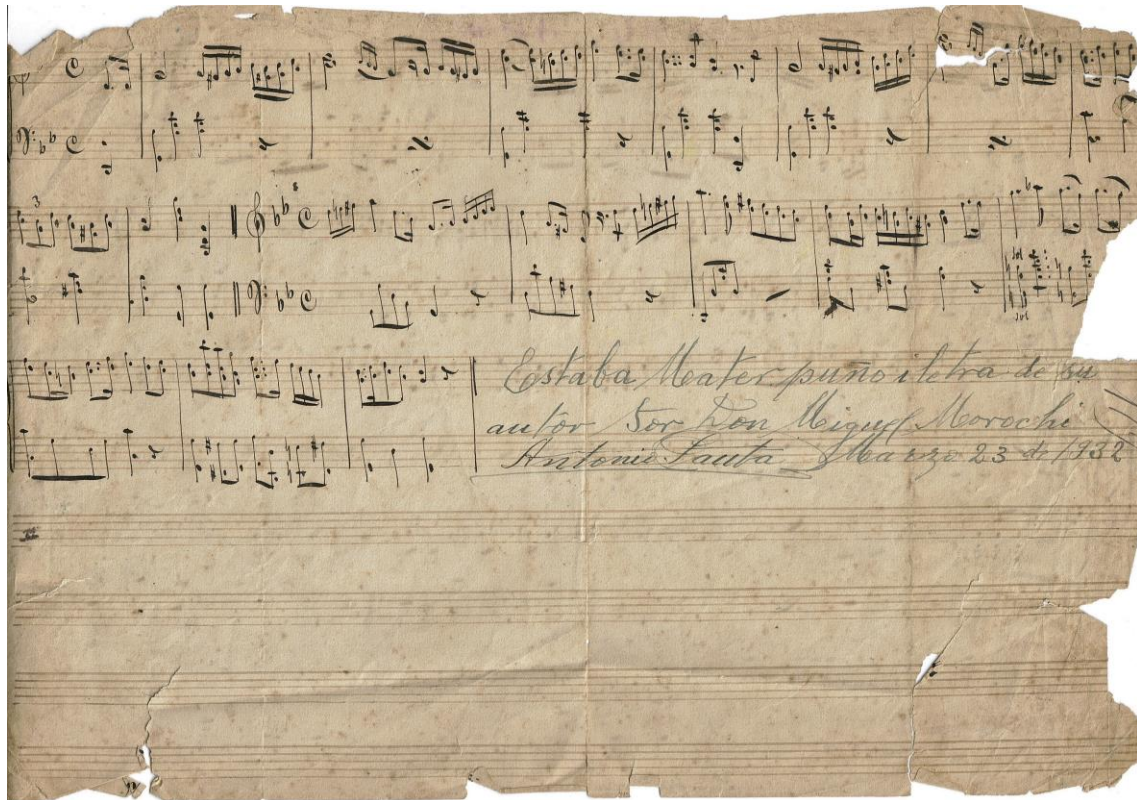 3
Estaba Mater puño i letra de su
autor Sor Don Miguel Morochi
Antonio Pauta Marzo 23 de 1932